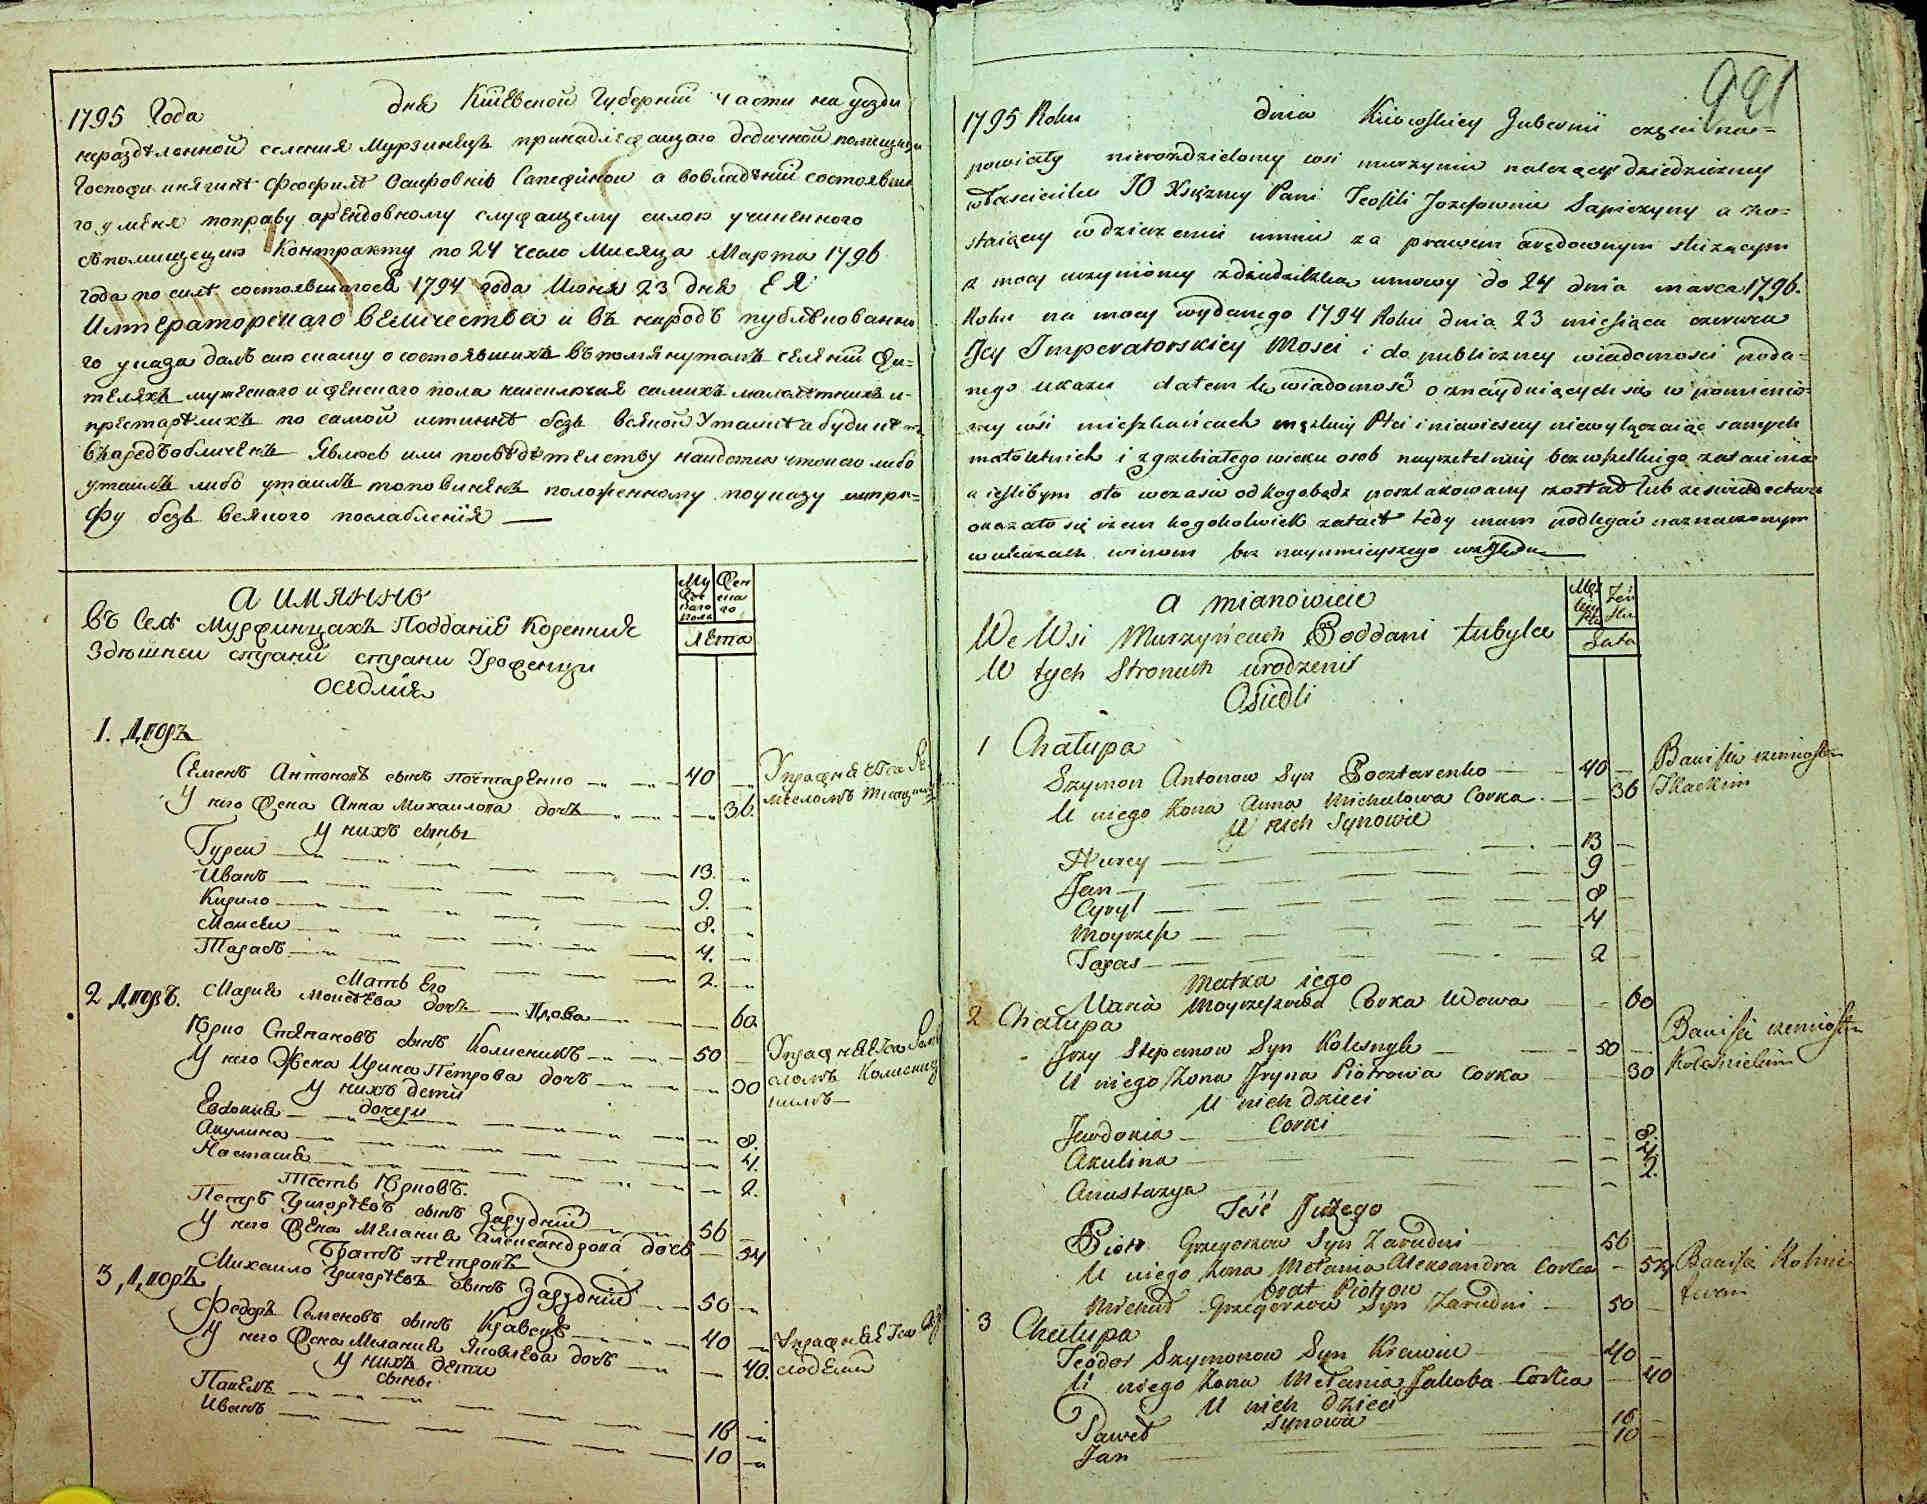 1795 Года дня Киевской Губернии части на уезди
нераздѣленной селения Мурзинецъ принадлежащаго дедичной помещици
Госпожи княгинѣ Феофилѣ Осифовнѣ Сапежиной а вовладѣнии состоявша
го у меня поправу арендовному служащему силою учиненного
спомищецию Контракту по 24 число Месяца Марта 1796
года по силѣ состоявшагося 1794 года Июня 23 дня ЕЯ
Императорскаго величества и въ народъ публѣкованна
го указа далъ сию скаску о состоявшихъ въ помянутомъ селении жи-
теляхъ мужескаго и женскаго пола неисключая самихъ малолетнихъ и
престарѣлихъ по самой истиннѣ безъ всякой Утайки а буди
въпредъ обличенъ Явлюсь или по свѣдѣтелству найдетса чтокого либо
утаилъ топовиненъ положенному по указу штра-
фу безъ всякого послабления —
А ИМЯННО
Въ Селѣ Мурзинцахъ Поддание Коренние
Здѣшней страни страни Уроженици
оседлие
Му жес каго пола
Жен ска го
Лѣта
1. Дворъ
Семенъ Антоновъ сынъ Почтаренко 40
Упражняетса Ре
меслом Ткацким
У него Жена Анна Михайлова дочъ 36.
У нихъ сыны
Гурей 13.
Иванъ 9.
Кирило 8.
Моисей 4.
Тарасъ 2.
Мать Его
Мария Моисѣева дочъ Вдова 60
2 Дворъ.
Юрко Степановъ сынъ Колисникъ 50
Упражняетса Реме
слом Колисниц
ким
У него Жена Ирина Петрова дочъ 30
У нихъ дети
дочери
Евдокия 8.
Акулина 4.
Настасия 2.
Тесть Юрковъ.
Петръ Григорѣевъ сынъ Зарудний 56
У него Жена Мелания Александрова дочъ 54
Братъ Петровъ
Михайло Григорѣевъ сынъ Зарудний 50
3 Дворъ
Федоръ Семеновъ сынъ Кравецъ 40
У него Жена Мелания Яковлева дочъ 40.
У нихъ дети
сыны
Павелъ 16
Иванъ 10
991
1795 Roku dnia Kiiowskiey Gubernii części na-
powiaty nierozdzieloney wsi Murzyniec należącey dziedziczney
właścicielce JO Xiężney Pani Teofili Jozefownie Sapieżyny a zo-
staiącey w dzierżeniu umnie za prawem arędownym służącym
z mocy uczynioney zdziedziczką umowy do 24 dnia marca 1796.
Roku na mocy wydanego 1794 Roku dnia 23 miesiąca czerwca
Jey Imperatorskiey Mości i do publiczney wiadomości poda-
nego ukazu dałem tę wiadomość o znayduiących się w pomienio-
ney wsi mieszkańcach męzkiey Płci i niewieściey niewyłączaiąc samych
małoletnich i zgrzybiałego wieku osob nayrzetelniey bez wszelkiego zataienia
a ieślibym oto wczasie od kogobądź poszlakowany został lub ze świadectwa
okazało się iżem kogokolwiek zataił tedy mam podlegać naznaczonym
w ukazach winom bez naymnieyszego względu —
A mianowicie
We Wsi Murzyńcach Poddani tubylca
W tych Stronach urodzeni
Osiedli
Lata
1 Chałupa
Szymon Antonow Syn Pocztarenko 40
Bawi się rzemiosłem
Tkackim
U niego Żona Anna Michałowa Corka 36
U nich Synowie
Hurey 13
Jan 9
Cyryl 8
Moyżesz 4
Taras 2
Matka iego
Maria Moyżeszowa Corka Wdowa 60
2 Chałupa
Jerzy Stepanow Syn Kolesnyk 50
Bawi się rzemiosłem
Kołodzieiskim
U niego Żona Iryna Piotrowa Corka 30
U nich dzieci
Corki
Jewdokia 8.
Akulina 4.
Anastazya 2.
Teść Jurzego
Piotr Grzegorzow Syn Zarudni 56
U niego Żona Melania Alexandra Corka 54
Brat Piotrow
Michał Grzegorzow Syn Zarudni 50
3 Chałupa
Bawi się Rolnic
twem
Teodor Szymonow Syn Krawiec 40
U niego Żona Melania Jakoba Corka 40
U nich dzieci
Synowie
Paweł 16
Jan 10